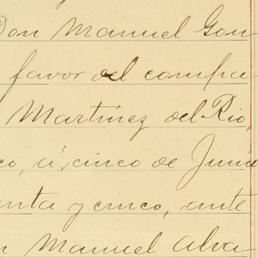 Don Manuel Gon
favor del compa-
Martínez del Rio,
co, á cinco de Juni
enta y cinco, ante
n Manuel Alva